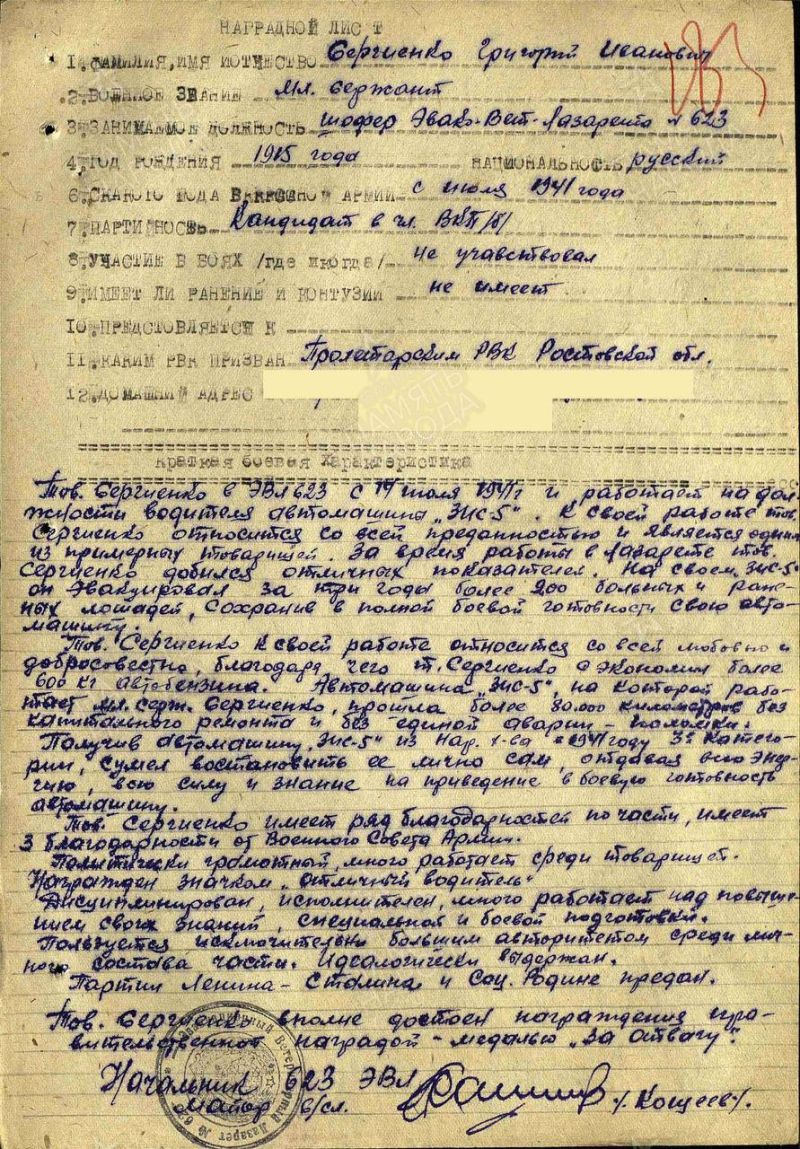 НАГРАДНОЙ ЛИСТ
1. ФАМИЛИЯ, ИМЯ ИОТЧЕСТВО Сергиенко Григорий Иванович
2. ВОЕННОЕ ЗВАНИЕ Мл. Сержант
3. ЗАНИМАЕМОЕ ДОЛЖНОСТЬ шофер Эвако-Вет-Лазарета № 623
4. ГОД РОЖДЕНИЯ 1915 года НАЦИОНАЛЬНОСТЬ русский
6. СКАКОГО ГОДА В КРАСНОЙ АРМИИ с июля 1941 года
7. ПАРТИЙНОСТЬ Кандидат в чл. ВКП/б/
8. УЧАСТИЕ В БОЯХ /где икогда/ не учавствовал
9. ИМЕЕТ ЛИ РАНЕНИЕ И КОНТУЗИИ не имеет
10. ПРЕДСТОВЛЯЕТСЯ К
11. КАКИМ РВК ПРИЗВАН Пролетарским РВК Ростовской обл.
12. ДОМАШНИЙ АДРЕС
ПАМЯТЬ НАРОДА
Краткая боевая характеристика
Тов. Сергиенко в ЭВЛ 623 с июля 1941г и работает на дол-
жности водителя автомашина „ЗИС-5". К своей работе тов.
Сергиенко относится со всей преданностью и является одним
из примерных товарищей. За время работы в Лазарете тов.
Сергиенко добился отличных показателей. На своем „ЗИС-5"
он эвакуировал за три годы более 200 больных и ране-
ных лошадей, сохранив в полной боевой готовности свою авто-
машину.
Тов. Сергиенко к своей работе относится со всей любовью и
добросовестно, благодаря чего т. Сергиенко сэкономил более
600 кг автобензина. Автомашина „ЗИС-5", на которой рабо-
тает мл. серж. Сергиенко, прошла более 80.000 километров без
капитального ремонта и без единой аварии - поломки.
Получив автомашину „ЗИС-5" из Нар. Х-ва в 1941 году 3й катего-
рии, сумел востановить ее лично сам, отдавая всю энер-
гию, всю силу и знание на приведение в боевую готовность
автомашину.
Тов. Сергиенко имеет ряд благодарностей по части, имеет
3 благодарности от Военного Совета Армии.
Политически грамотный, много работает среди товарищей.
Награжден значком „отличный водитель"
Дисциплинирован, исполнителен, много работает над повыше-
нием своих знаний, специальной и боевой подготовки.
Пользуется исключительно большим авторитетом среди лич-
ного состава части. Идеологически выдержан.
Партии Ленина - Сталина и Соц. Родине предан.
Тов. Сергиенко вполне достоен награждения пра-
вительственной наградой - медалью „За отвагу".
Начальник 623 ЭВЛ
Майор в/сл. /Кощеев/.
Ветеринарный Лазарет №